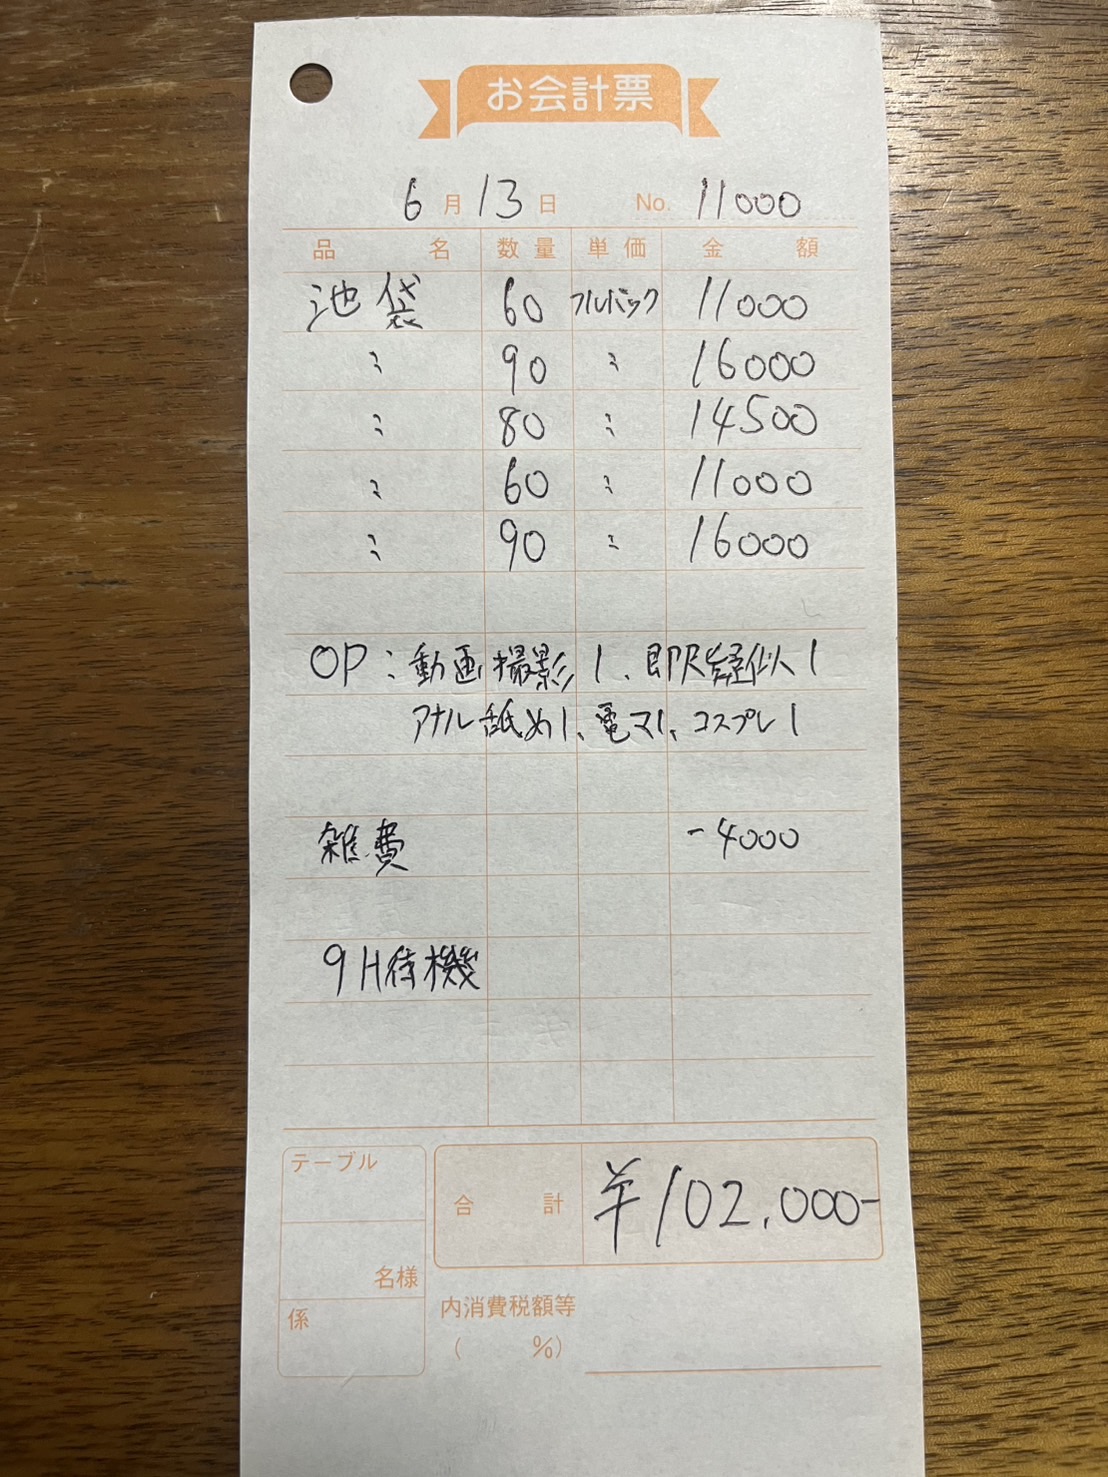 お会計票
6月13日 No. 11000
品名 数量 単価 金額
池袋 60 フルバック 11000
〃 90 〃 16000
〃 80 〃 14500
〃 60 〃 11000
〃 90 〃 16000
OP:動画撮影1、即尺縫似1
アナル舐め1、電マ1、コスプレ1
雑費 -4000
9H待機
テーブル
合計 ¥102,000-
名様
係
内消費税額等
( %)